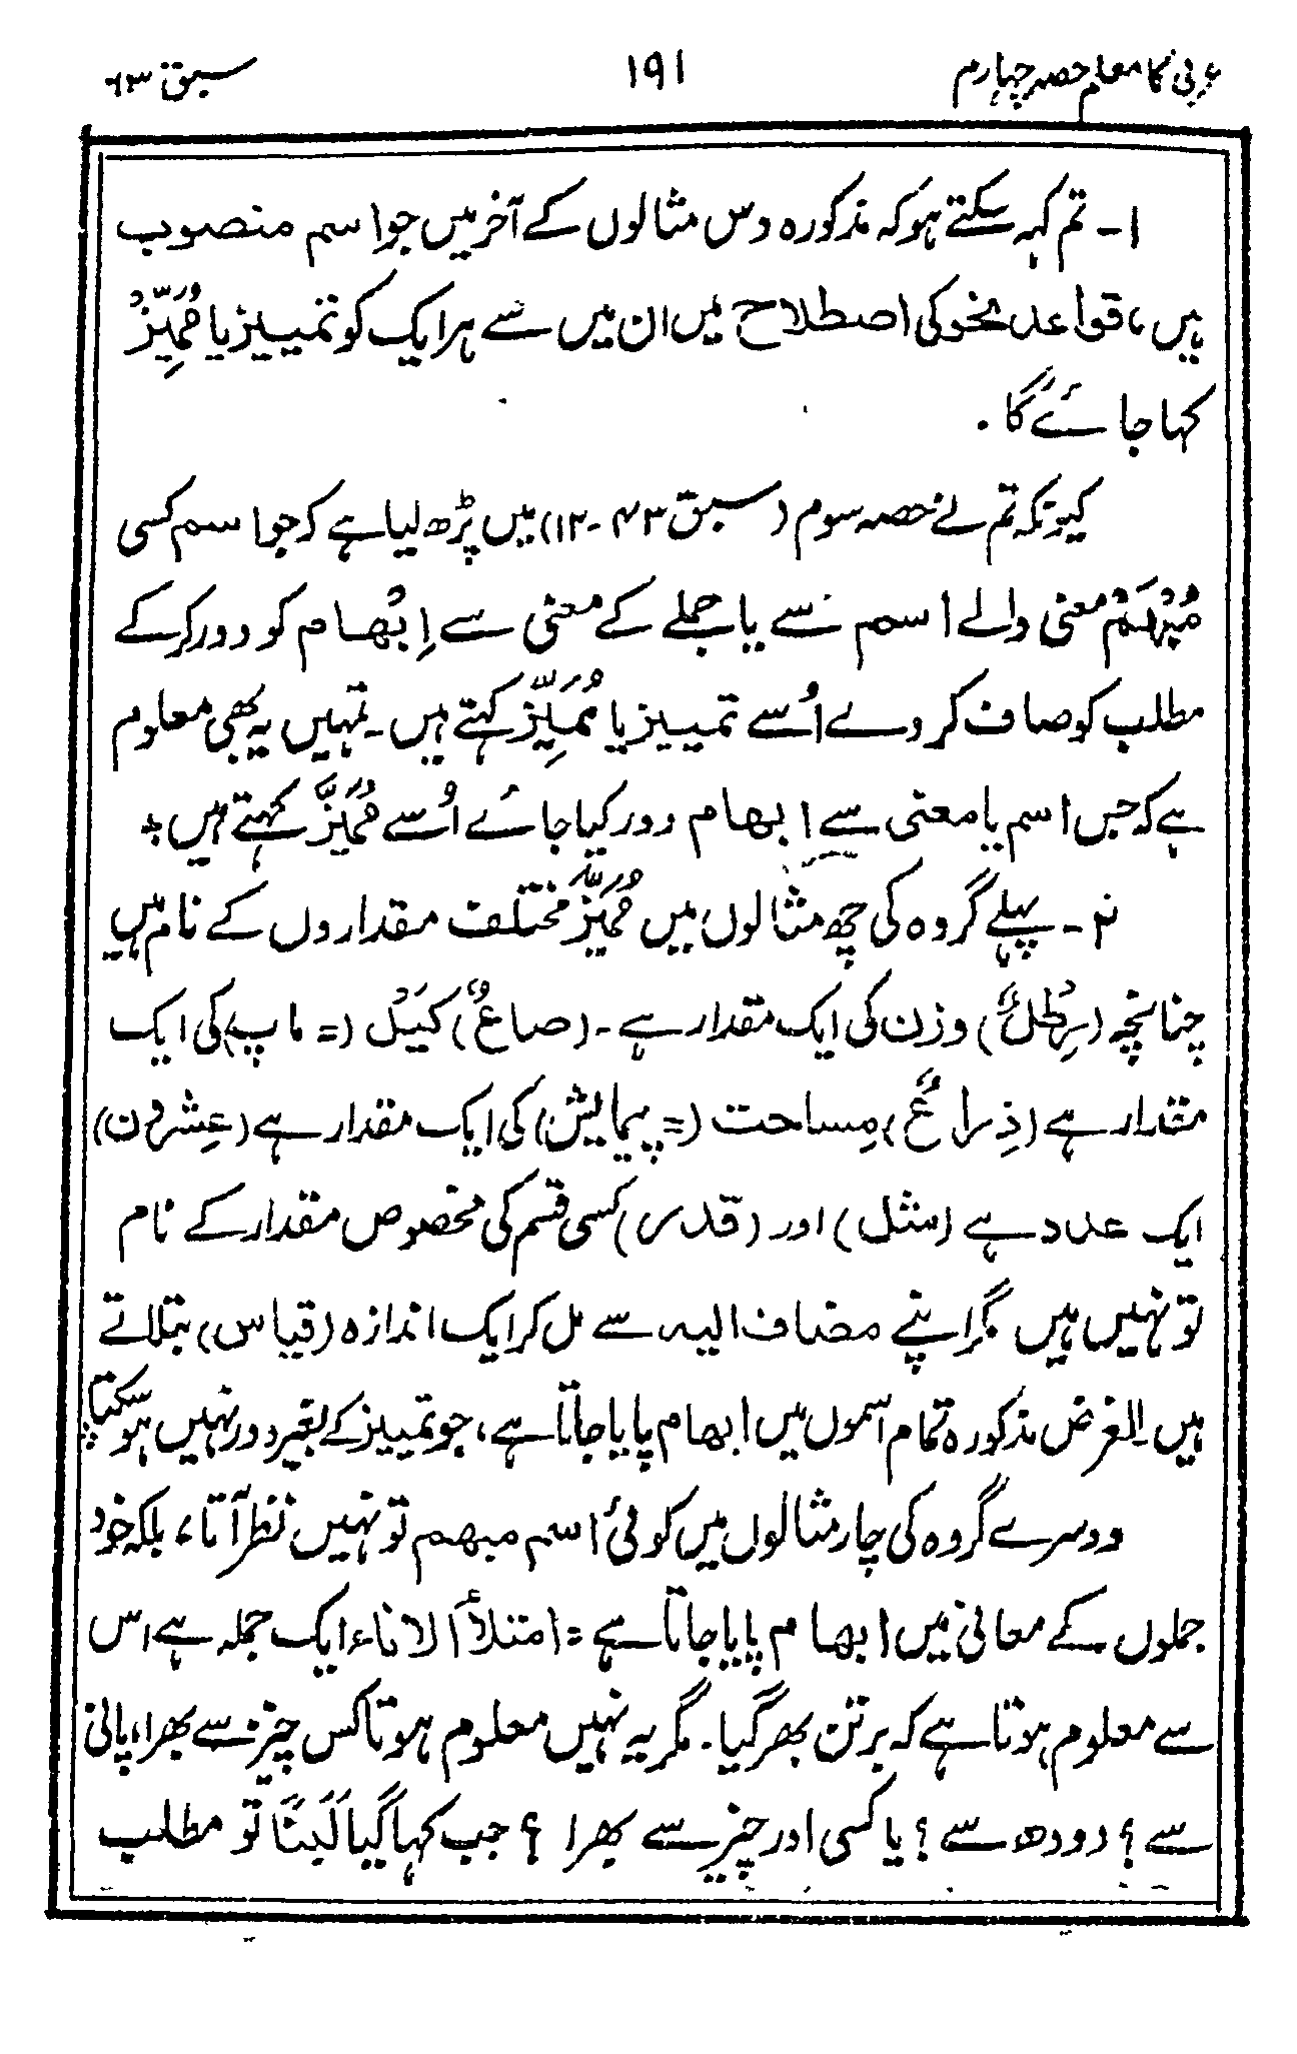 عربی کا معلم حصہ چہارم
۱۹۱
سبق ۶۳
۱- تم کہہ سکتے ہو کہ مذکورہ دس مثالوں کے آخر میں جو اسم منصوب
ہیں، قواعد نحو کی اصطلاح میں ان میں سے ہر ایک کو تمییز یا مُمَیِّزْ
کہا جائے گا۔
کیونکہ تم نے حصہ سوم (سبق ۴۳-۱۲) میں پڑھ لیا ہے کہ جو اسم کسی
مُبْہَمْ معنی والے اسم سے یا جملے کے معنی سے اِبْہام کو دور کر کے
مطلب کو صاف کر دے اُسے تمییز یا مُمَیِّز کہتے ہیں۔ تمہیں یہ بھی معلوم
ہے کہ جس اسم یا معنی سے ابہام دور کیا جائے اُسے مُمَیَّزْ کہتے ہیں؞
۲- پہلے گروہ کی چھ مثالوں میں مُمَیَّزْ مختلف مقداروں کے نام ہیں
چنانچہ (رِطْلٌ) وزن کی ایک مقدار ہے۔ (صاعٌ) کَیْل (= ماپ) کی ایک
مقدار ہے (ذِراعٌ) مِساحت (= پیمایش) کی ایک مقدار ہے (عِشْرون)
ایک عدد ہے (مثل) اور (قدر) کسی قسم کی مخصوص مقدار کے نام
تو نہیں ہیں مگر اپنے مضاف الیہ سے مل کر ایک اندازہ (قیاس) بتلاتے
ہیں۔ الغرض مذکورہ تمام اسموں میں ابہام پایا جاتا ہے، جو تمییز کے بغیر دور نہیں ہو سکتا؞
دوسرے گروہ کی چار مثالوں میں کوئی اسم مبہم تو نہیں نظر آتا، بلکہ خود
جملوں کے معانی میں ابہام پایا جاتا ہے = امتلأ الاناء ایک جملہ ہے اس
سے معلوم ہوتا ہے کہ برتن بھر گیا۔ مگر یہ نہیں معلوم ہوتا کس چیز سے بھرا، پانی
سے؟ دودھ سے؟ یا کسی اور چیز سے بھرا ؟ جب کہا گیا لَبَنًا تو مطلب